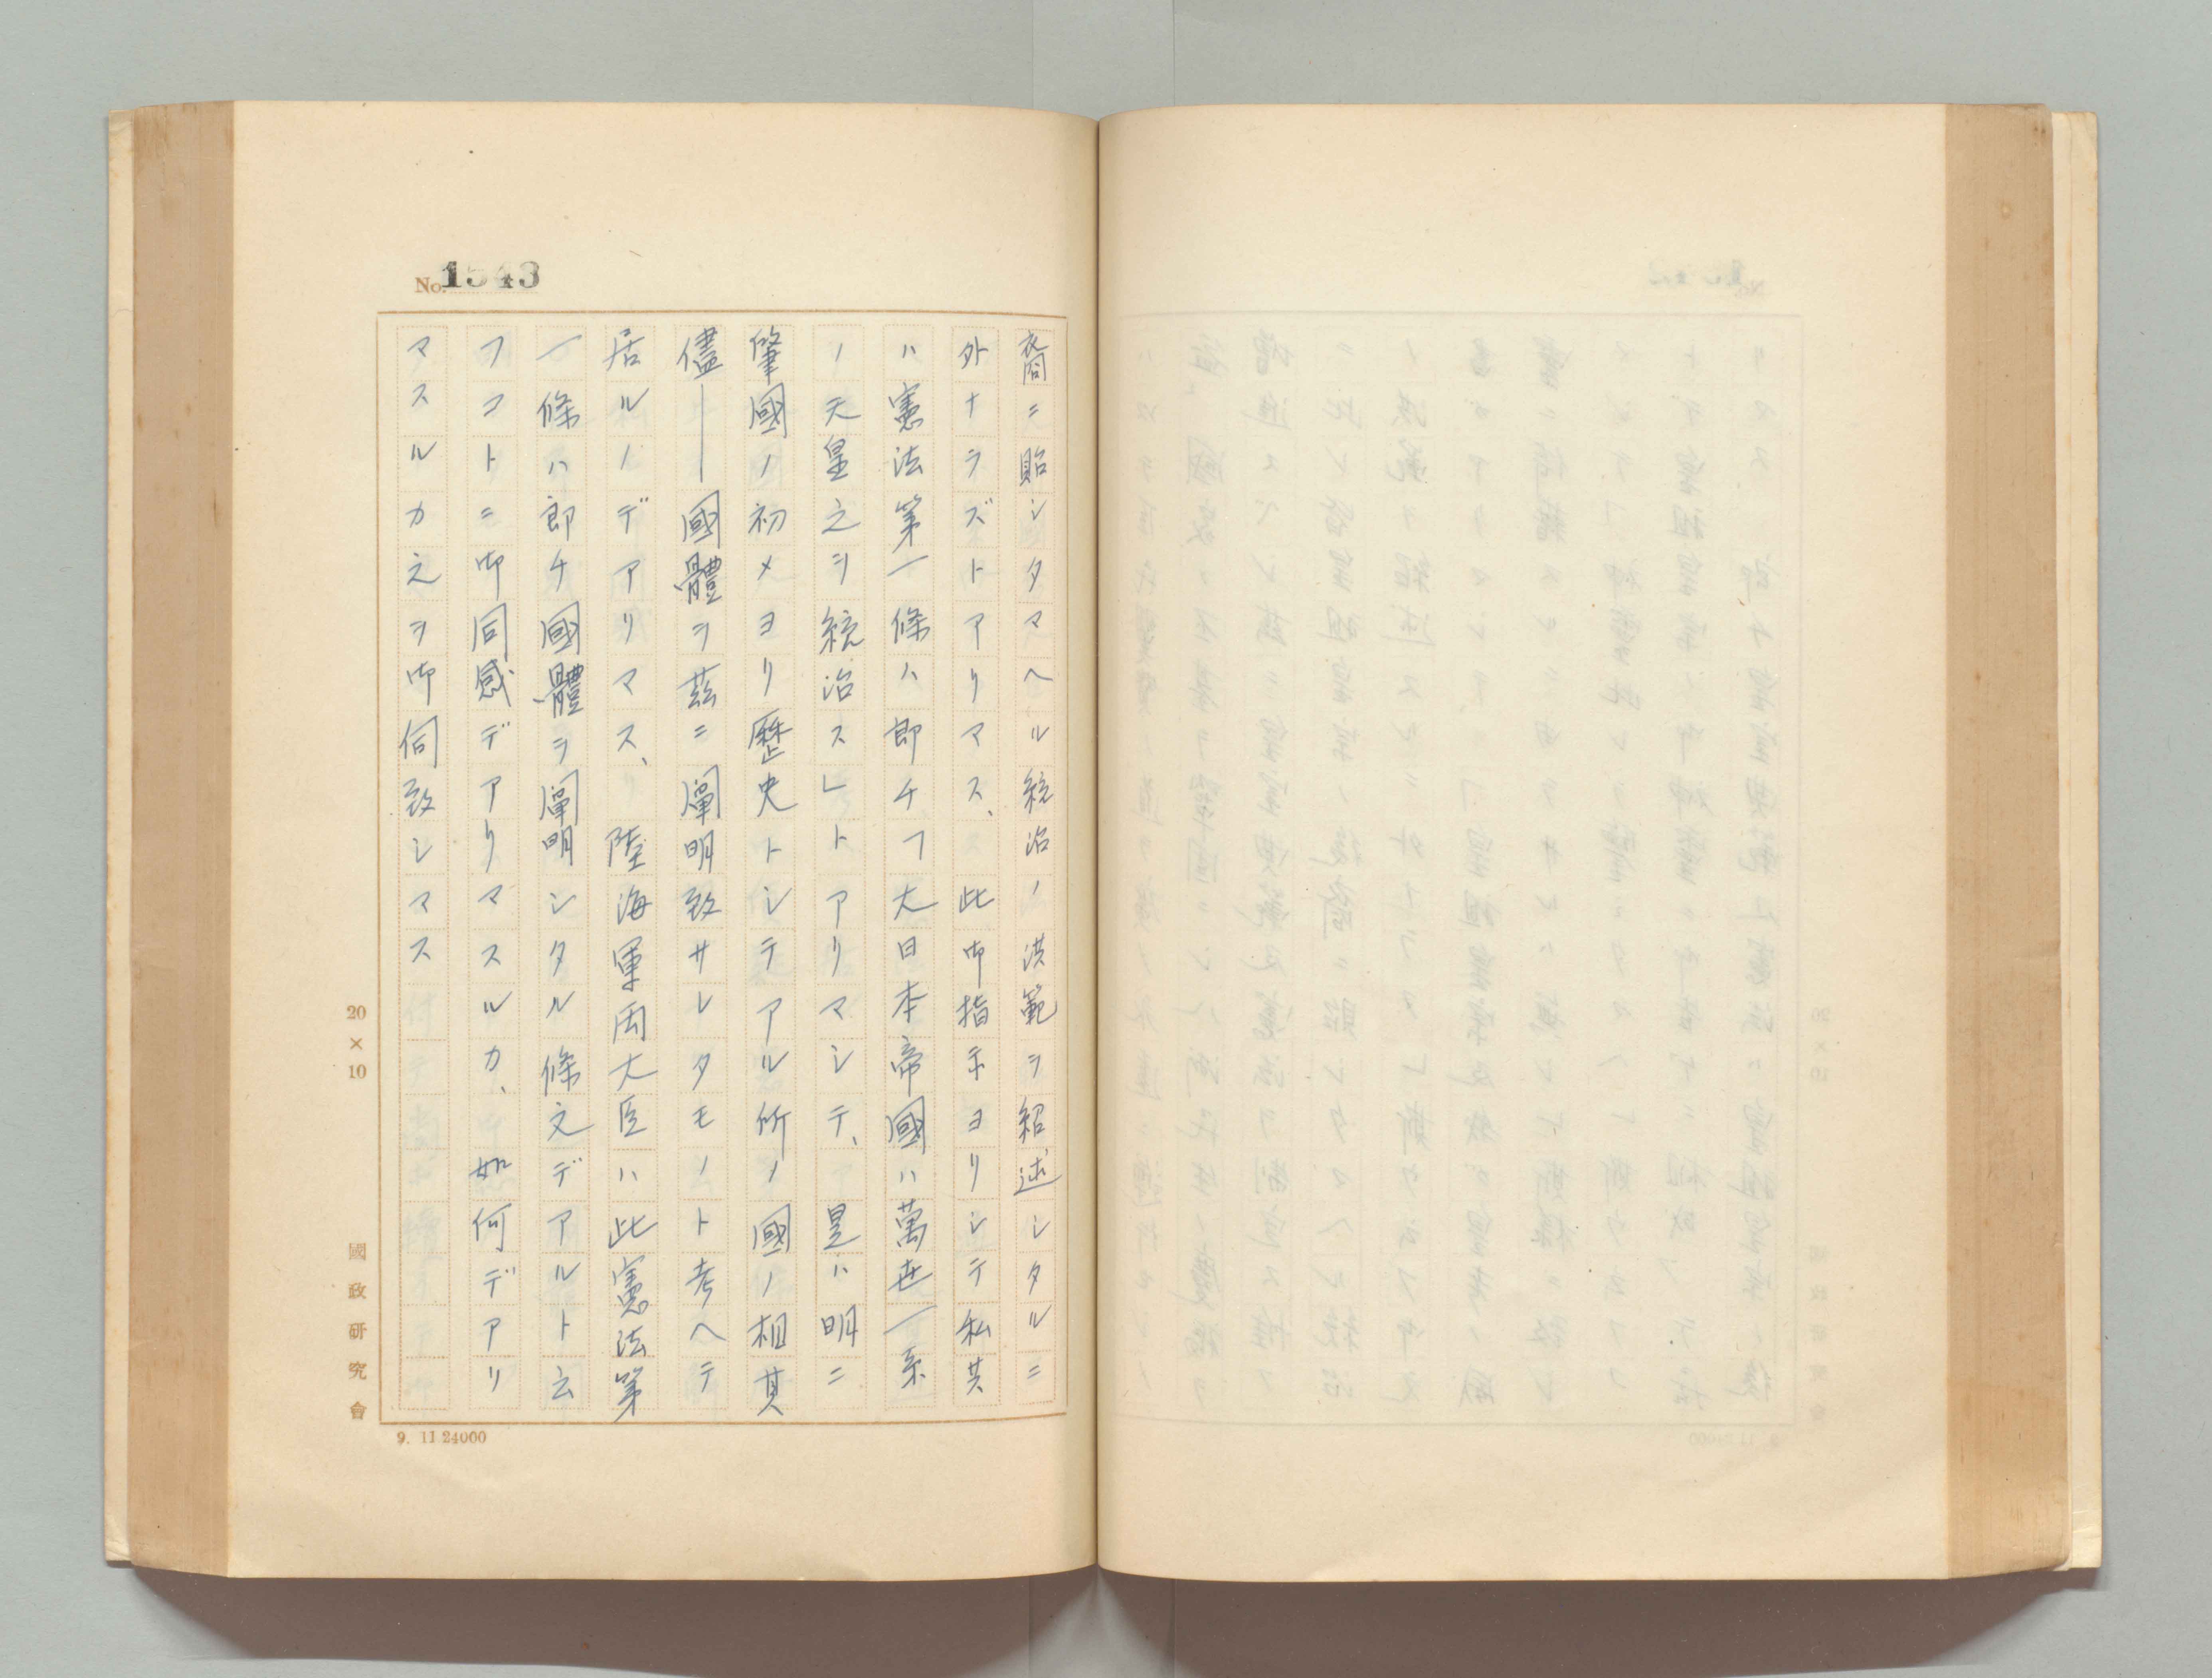 No. 1543
裔ニ貽シタマヘル統治ノ洪範ヲ紹述シタルニ
外ナラズトアリマス、此御指示ヨリシテ私共
ハ憲法第一條ハ即チ「大日本帝國ハ萬世一系
ノ天皇之ヲ統治ス」トアリマシテ、是ハ明ニ
肇國ノ初メヨリ歴史トシテアル所ノ國ノ相其
儘―國體ヲ茲ニ闡明致サレタモノト考ヘテ
居ルノデアリマス、陸海軍両大臣ハ此憲法第
一條ハ即チ國體ヲ闡明シタル條文デアルト云
フコトニ御同感デアリマスルカ、如何デアリ
マスルカ之ヲ御伺致シマス
20×10
國政研究會
9. 11 24000